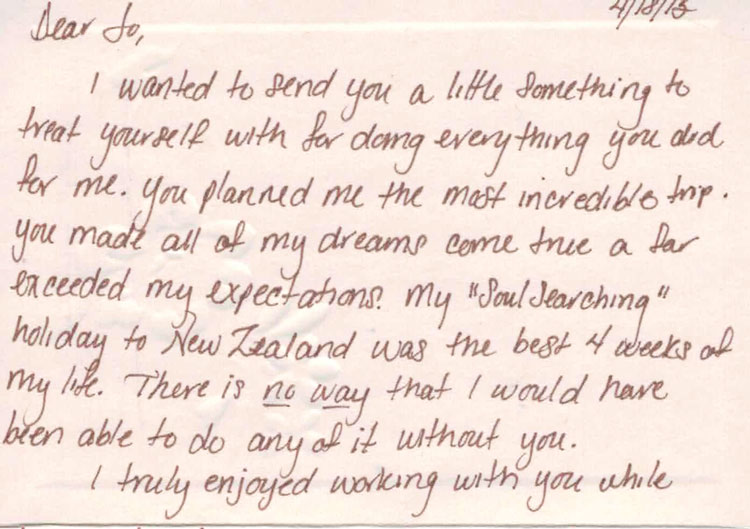 4/18/13
Dear Jo,
I wanted to send you a little something to
treat yourself with for doing everything you did
for me. You planned me the most incredible trip.
You made all of my dreams come true a far
exceeded my expectations. My "Soul Searching"
holiday to New Zealand was the best 4 weeks of
my life. There is no way that I would have
been able to do any of it without you.
I truly enjoyed working with you while